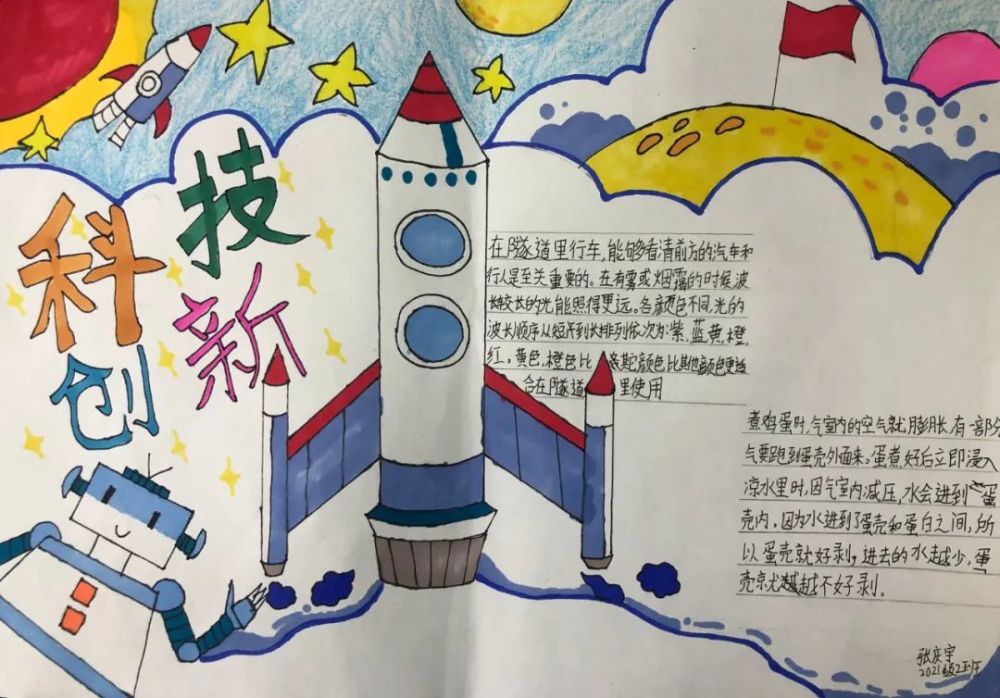 科技
创新
在隧道里行车,能够看清前方的汽车和
行人是至关重要的。在有雾或烟雾的时候波
长较长的光能照得更远。各颜色不同,光的
波长顺序从短到长排列依次为:紫,蓝,黄,橙,
红。黄色,橙色比 颜色比其他颜色更适
合在隧道里使用
煮鸡蛋时,气室内的空气就膨胀,有一部分
气要跑到蛋壳外面来。蛋煮好后立即浸入
凉水里时,因气室内减压,水会进到蛋
壳内。因为水进到了蛋壳和蛋白之间,所
以蛋壳就好剥,进去的水越少,蛋
壳就越不好剥。
张庆宇
2021级2班